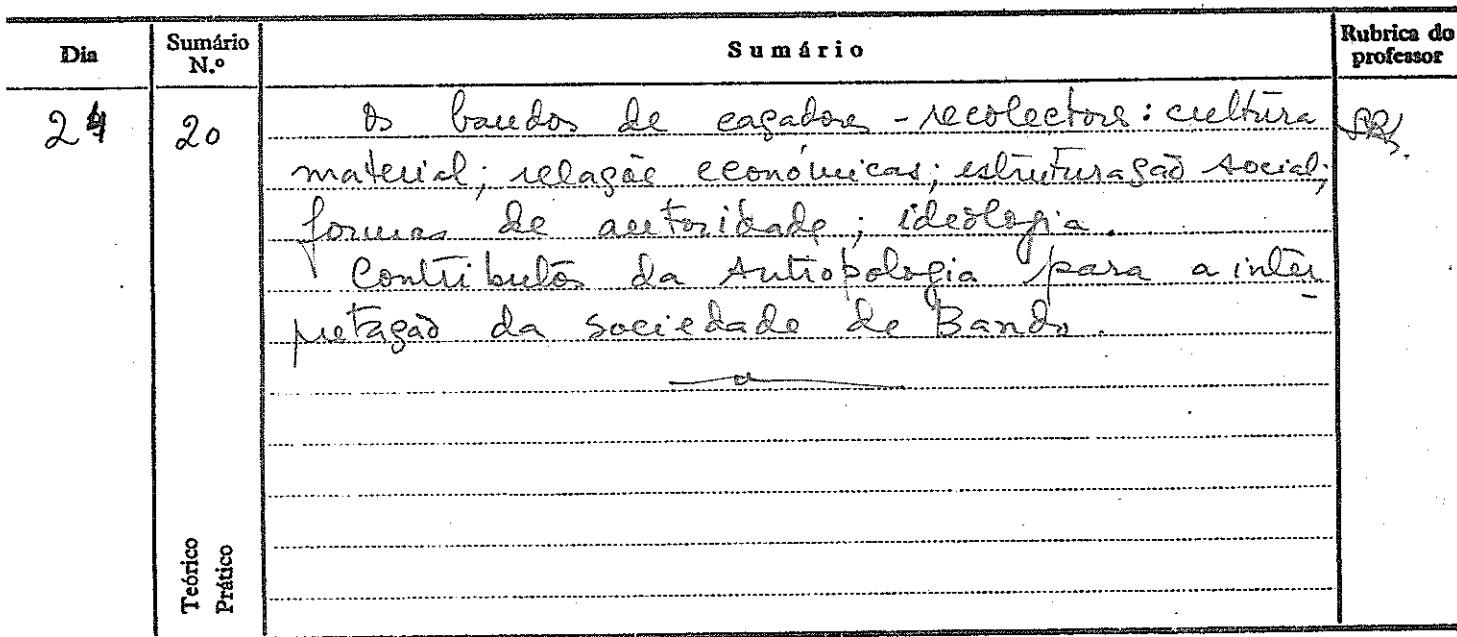 Dia Sumário N.º Sumário Rubrica do professor
24 20 Os bandos de caçadores-recolectores: cultura
material; relações económicas; estruturação social;
formas de autoridade; ideologia.
Contributos da Antropologia para a inter
pretação da sociedade de Bandos.
Teórico
Prático